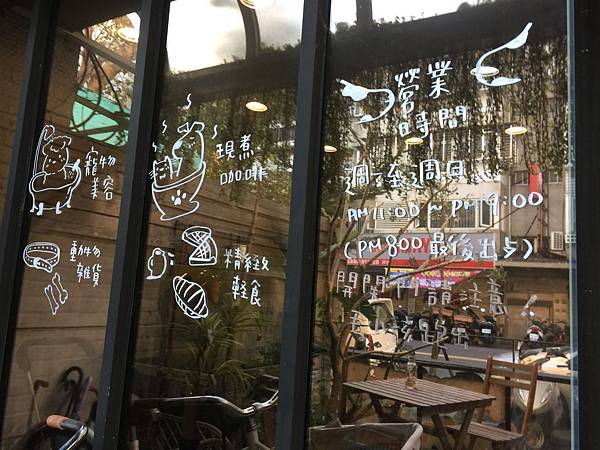 寵物
美容
動物
雜貨
現煮
咖啡
精緻
輕食
營業
時間
週一至週日
AM 11:00 ~ PM 9:00
(PM 8:00 最後出
開門 請注意